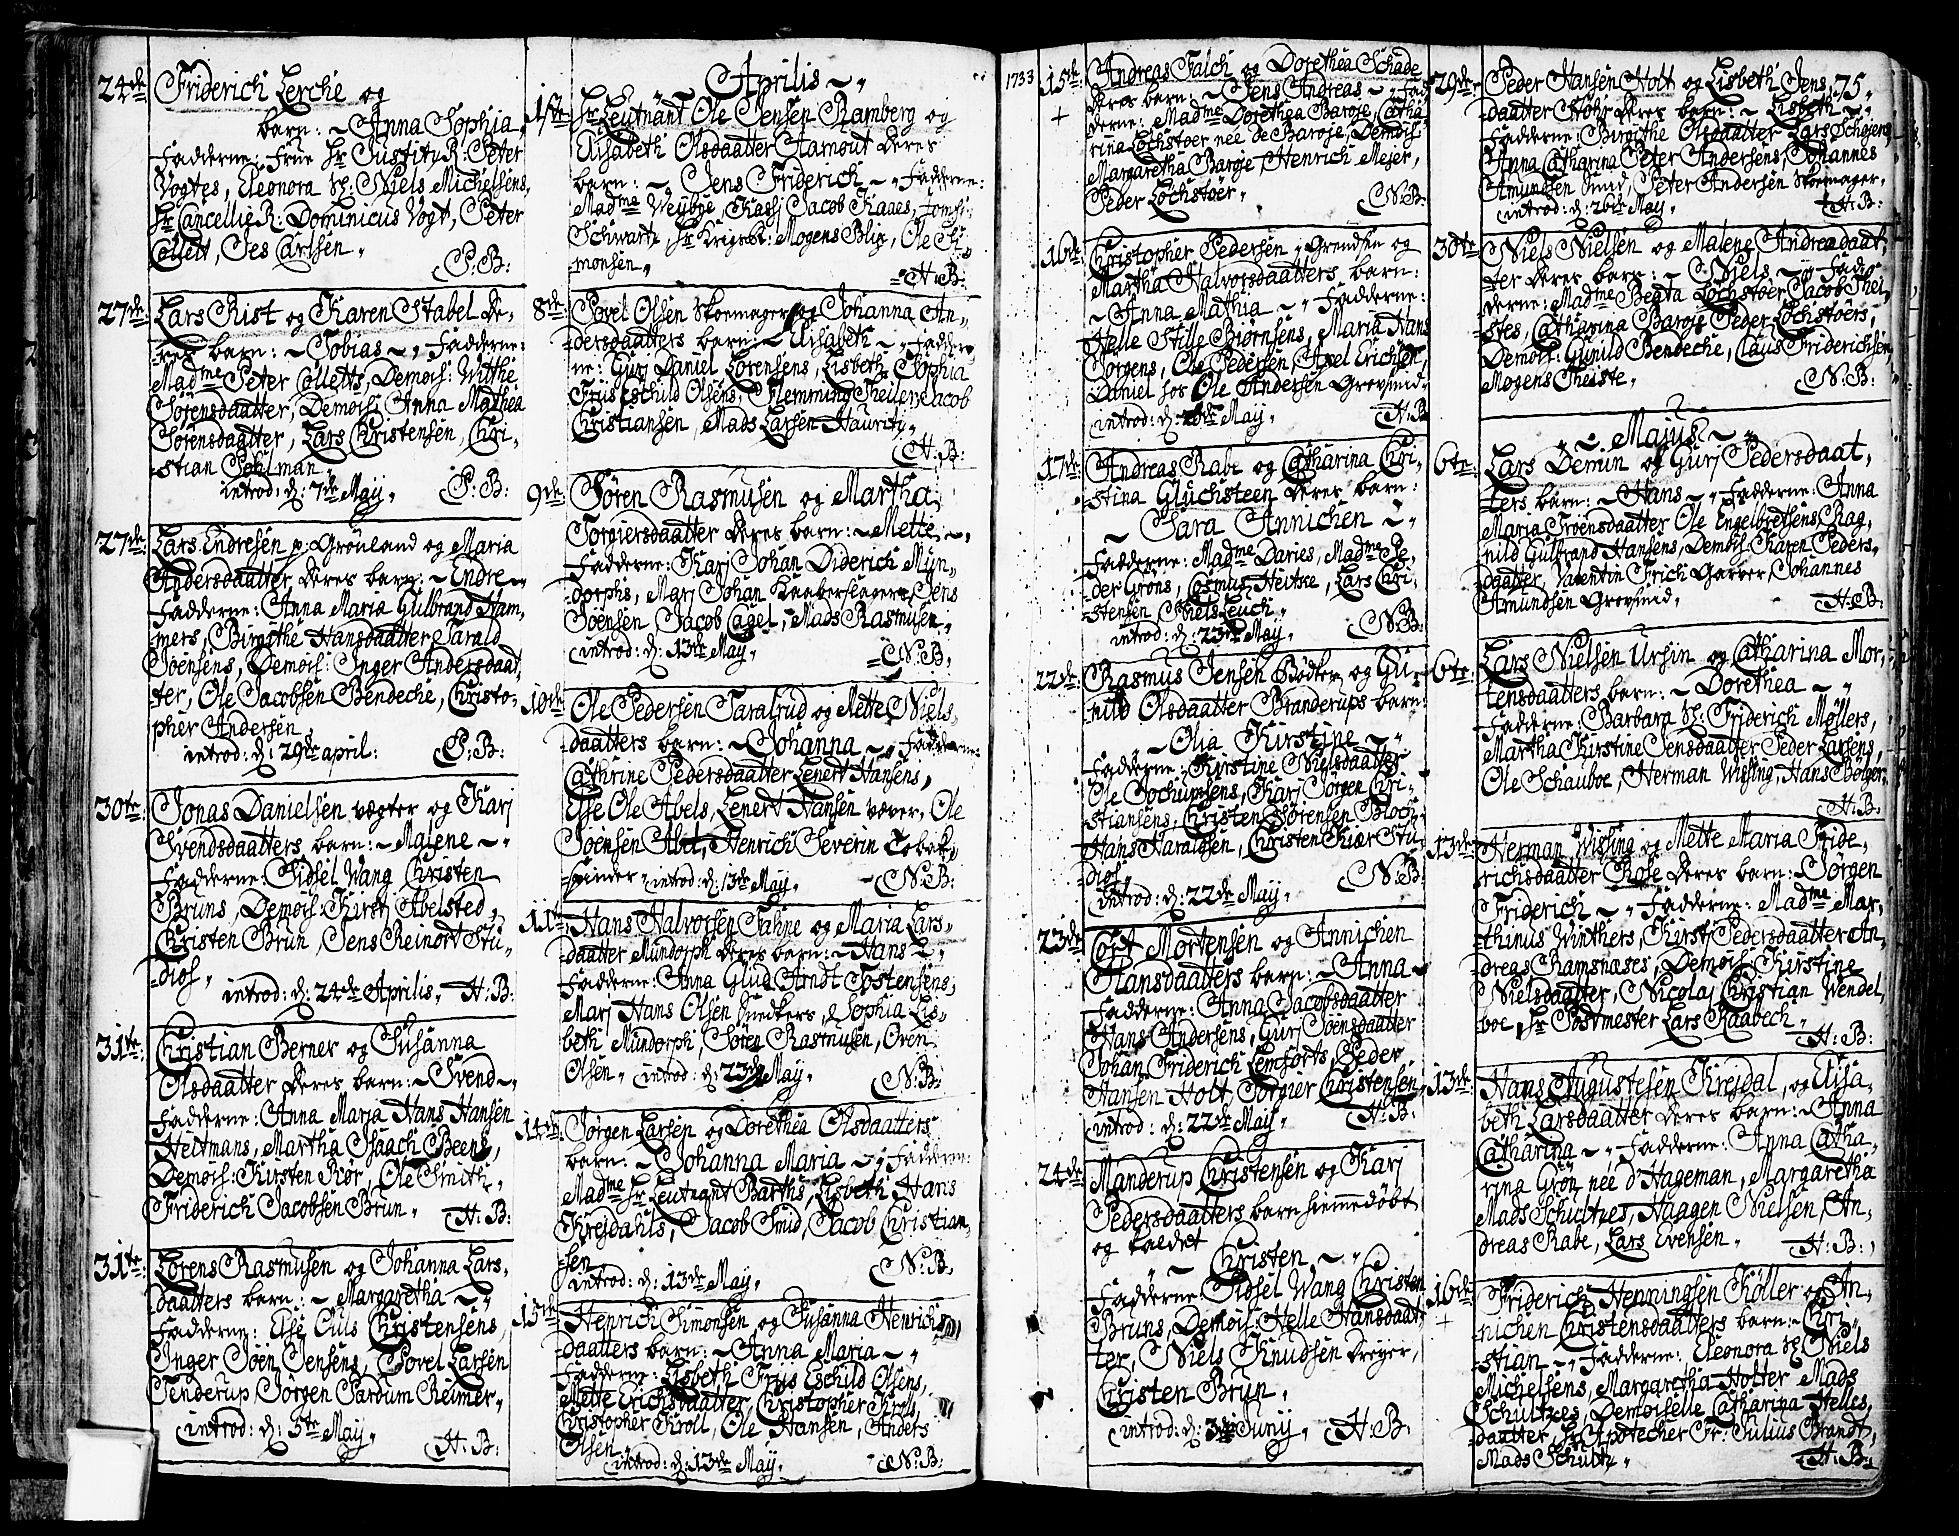 24de
Friderich Lerche og
barn: ~ Anna Sophia
Fadderne: Frue Hr Justitz R: Peter
Vogtes, Eleonora Sl: Niels Michelsens,
Hr Cancellie R: Dominicus Vogt, Peter
Collett, Jes Carlsen
P: B:
27de
Lars Rist og Karen Stabel De,
res barn: ~ Tobias ~ Fadderne:
Madme Peter Colletts, Demois: Withe
Sørensdaatter, Demois: Anna Mathea
Sørensdaatter, Lars Christensen, Chri,
stian Pohlman
introd: d: 7de May, P: B:
27de
Lars Endresen p: Grønland og Maria
Andersdaatter deres barn: ~ Endre ~
Fadderne: Anna Maria Gulbrand Ham,
mers, Birgithe Hansdaatter Tarald
Joensens, Demois: Inger Andersdaat,
ter, Ole Jacobsen Bendeche, Christo,
pher Andersen
introd: d: 29de april: P: B:
30te
Jonas Danielsen vægter og Karj
Svendsdaatters barn: ~ Malene ~
Fadderne: Sidsel Wang Christen
Bruns, Demois: Kirst: Abelsted,
Christen Brun, Jens Reinort Stu,
dios,
introd: d: 24de Aprilis, H: B:
31te
Christian Berner og Susanna
Olsdaatter deres barn: ~ Svend ~
Fadderne: Anna Maria Hans Hansen
Heitmans, Martha Isaach Beens,
Demois: Kirsten Rør, Ole Smith,
Friderich Jacobsen Brun, H: B:
31te
Lorens Rasmusen og Johanna Lars,
daatters barn: ~ Margaretha ~
Fadderne: Else Christensens,
Inger Joen Jensens, Povel Larsen
Tenderup, Jørgen Pardum Reimer,
introd: d: 5te May, H: B:
~ Aprilis ~
1ste
Hr Leutnant Ole Jensen Ramberg og
Elisabeth Olsdaatter Stamout deres
barn: ~ Jens Friderich ~ Fadderne:
Madme Weybye, Jacob Kaaes,
Schwartz, Hr Krigsbt: Mogens Blix, Ole Si,
monsen,
H: B:
8de
Povel Olsen Skoemager og Johanna An,
dersdaatters barn: ~ Elisabeth ~ Fadder,
ne: Gurj Daniel Lorensens, Lisbeth Sophia
Friis Eschild Olsens, Flemming Theilen, Jacob
Christiansen, Mads Larsen Hauritz,
H: B:
9de
Søren Rasmusen og Martha
Torgiersdaatter deres barn: ~ Mette ~,
Fadderne: Karj Johan Diderich Mun,
dorphs, Marj Johan Kaaberslagers, Jens
Joensen, Jacob Cagel, Mads Rasmusen,
introd: d: 13de May, N: B:
10de
Ole Pedersen Taralrud og Mette Niels,
daatters barn: ~ Johanna ~ Fadderne:
Cathrine Pedersdaatter Lenert Hansens,
Else Ole Abels, Lenert Hansen væver, Ole
Joensen Abel, Henrich Severin Tobak,
spinder, introd: d: 13de May, N: B:
11te
Hans Halvorsen Fahne og Maria Lars,
daatter Mundorph deres barn: ~ Hans ~
Fadderne: Anna Glud Arndt Tostensens,
Marj Hans Olsen Snedkers, Sophia Lis,
beth Mundorph, Søren Rasmusen, Oven
Olsen, introd: d: 23de May, N: B:
14de
Jørgen Larsen og Dorethea Olsdaatters
barn: ~ Johanna Maria ~ Fadderne:
Madme Hr Leutnant Barths, Lisbeth Hans
Krejdahls, Jacob Smid, Jacob Christian,
sen
introd: d: 13de May, N: B:
15de
Henrich Simonsen og Susanna Henrichs
daatters barn: ~ Anna Maria ~
Fadderne: Lisbeth Friis Eschild Olsens,
Mette Erichsdaatter Christopher Krols,
Christopher Kroll, Ole Hansen, Anders
Olsen,
introd: d: 13de May, N: B:
1733
15de
+
Andreas Falch og Dorethea Schade
deres barn: ~ Jens Andreas ~ Fad,
derne: Madme Dorethea Baroje, Catha,
rina Lochstoer née de Baroje, Demois:
Margaretha Baroje, Henrich Mejer,
Peder Lochstoer, N: B:
16de
Christopher Pedersen p: Grendsen og
Martha Halvorsdaatters barn:
~ Anna Mathia ~ Fadderne:
Helle Stille Biørnsens, Maria Hans
Jørgens, Ole Pedersen, Axel Erichsen,
Daniel hos Ole Andersen Grovsmid,
introd: d: May, H: B:
17de
Andreas Rabe og Catharina Chri,
stina Gluchsteen deres barn:
~ Sara Annichen ~
Fadderne: Madme Daries, Madme Pe,
der Grøns, Cosmus Heitse, Lars Chri,
stensen, Niels Leuch,
introd: d: 23de May, N: B:
22de
Rasmus Jensen Bødker og Gu,
nild Olsdaatter Branderups barn:
~ Olia Kirstine ~
Fadderne: Kirstine Nielsdaatter
Ole Jochumsens, Karj Jørgen Chri,
stiansens, Christen Sørensen Bloch,
Hans Haraldsen, Christen Kiær Stu,
dios,
introd: d: 22de May, N: B:
23de
Cort Mortensen og Annichen
Hansdaatters barn: ~ Anna ~
Fadderne: Anna Jacobsdaatter
Hans Andersens, Gurj Joensdaatter
Johan Friderich Lemforts, Peder
Hansen Holt, Torgier Christensen,
introd: d: 22de May, H: B:
24de
Manderup Christensen og Karj
Pedersdaatters barn hiemmedøbt
og kaldet
~ Christen, ~
Fadderne: Sidsel Wang Christen
Bruns, Demois: Helle Hansdaat,
ter, Niels Knudsen Dreyer,
Christen Brun,
introd: d: 3de Junij, H: B:
75,
29de
Peder Hansen Holt og Lisbeth Jens,
daatter Stohr deres barn: ~ Lisbeth ~
Fadderne: Birgithe Olsdaatter Lars Schøjens,
Anna Catharina Peter Andersens, Johannes
Amundsen Smid, Peter Andersen Skoemager,
introd: d: 26de May, H: B:
30te
Niels Nielsen og Malene Andreædaat,
ter deres barn: ~ Niels ~ Fad,
derne: Madme Beata Lochstoer Jacob Thei,
stes, Catharina Baroje Peder Lochstoers,
Demois: Gunild Bendeche, Claus Friderichsen,
Mogens Theiste, N: B:
~ Majus ~
6te
Lars Demin og Gurj Pedersdaat,
ters barn: ~ Hans ~ Fadderne: Anna
Maria Troensdaatter Ole Engelbretsens, Rag,
nild Gulbrand Hansens, Demois: Karen Peders,
daatter, Valentin Frich Garver, Johannes
Amundsen Grovsmid, H: B:
6te
Lars Nielsen Ursin og Catharina Mor,
tensdaatters barn: ~ Dorethea ~
Fadderne: Barbara Sl: Friderich Møllers,
Martha Kirstine Jensdaatter Peder Larsens,
Ole Schauboe, Herman Wissing, Hans Bølger,
H: B:
13de
Herman Wissing og Mette Maria Fride,
richsdaatter Rose deres barn: ~ Jørgen
Friderich ~ Fadderne: Madme Mar,
thinus Winthers, Kirst: Pedersdaatter An,
dreas Ramsnæses, Demois: Kirstine
Nielsdaatter, Nicolaj Christian Wendel,
boe, Hr Postmester Lars Raabech,
H: B:
13de
Hans Augustesen Krejdal, og Elisa,
beth Larsdaatter deres barn: ~ Anna
Catharina ~ Fadderne: Anna Catha,
rina Grøn née d'Hageman, Margaretha
Mads Schultzes, Haagen Nielsen, An,
dreas Rabe, Lars Evensen, H: B:
16de
+
Friderich Henningsen Køller og An,
nichen Christensdaatters barn: ~ Chri,
stian ~ Fadderne: Eleonora Sl: Niels
Michelsens, Margaretha Holter Mads
Schultzes, Demoiselle Catharina Helles,
daatter, Hr Apotecher Fr: Julius Brandt,
Mads Schultz, H: B: